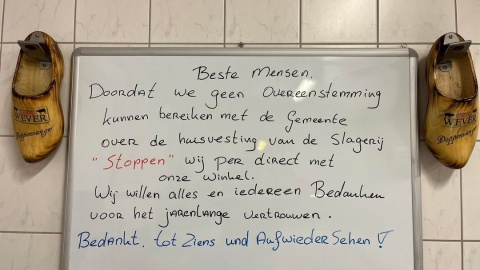 Beste mensen.
Doordat we geen Overeenstemming
kunnen bereiken met de Gemeente
over de huisvesting van de Slagerij
"Stoppen" wij per direct met
onze winkel.
Wij willen alles en iedereen Bedanken
voor het jarenlange vertrouwen.
Bedankt, tot Ziens und Aufwieder Sehen!
WEVER
WEVER